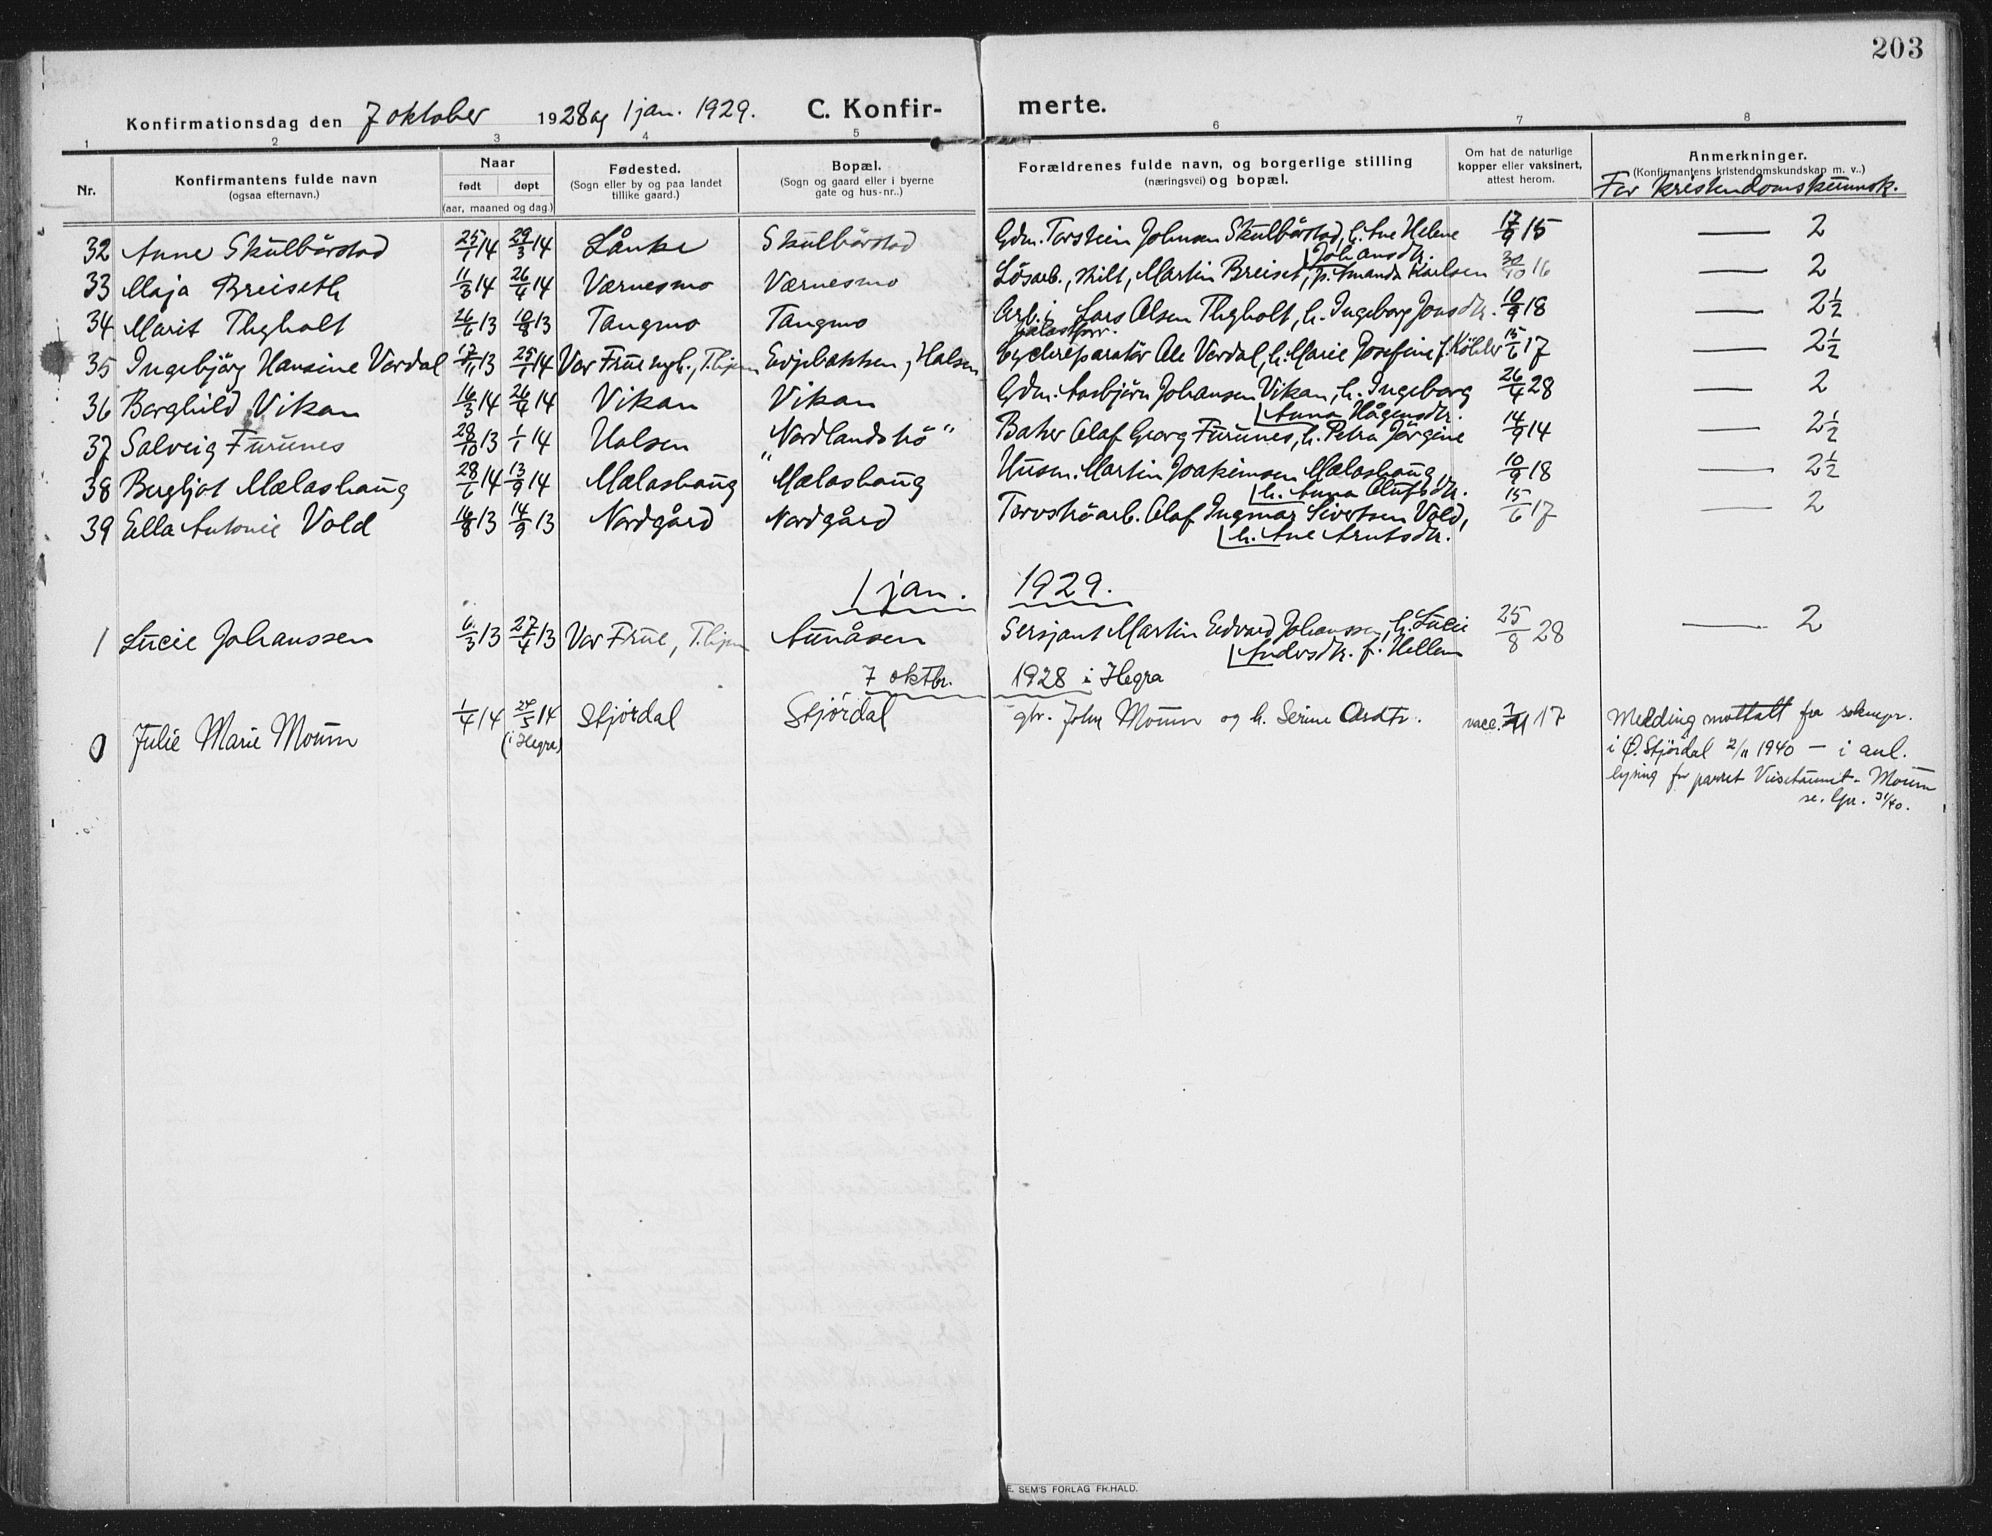 203
Konfirmationsdag den 7 oktober 1928 og 1 jan. 1929. C. Konfir- merte.
1 2 3 4 5 6 7 8
Nr. Konfirmantens fulde navn (ogsaa efternavn.) Naar født døpt (aar, maaned og dag.) Fødested. (Sogn eller by og paa landet tillike gaard.) Bopæl. (Sogn og gaard eller i byerne gate og hus-nr.) Forældrenes fulde navn, og borgerlige stilling (næringsvei) og bopæl. Om hat de naturlige kopper eller vaksinert, attest herom. Anmerkninger. (Konfirmantens kristendomskundskap m. v.)
For kristendomskunnsk.
32 Anne Skulbörstad 25/1 14 29/3 14 Lånke Skulbörstad Gdm. Torstein Johnsen Skulbörstad, h. Ane Helene 17/9 15 — 2
Johansdtr.
33 Maja Breiseth 11/3 14 26/4 14 Værnesmo Værnesmo Lösarb., skilt, Martin Breiset, p. Amanda Karlsen 30/10 16 — 2
34 Marit Thyholt 26/6 13 10/8 13 Tangmo Tangmo Arb. i Lars Olsen Thyholt, h. Ingeborg Jonsdtr. 10/9 18 — 2½
35 Ingebjörg Hansine Verdal 17/11 13 25/1 14 Vor Frue mgh., T.hjem Evjebakken, Halsen Cyckelreparatör Ole Verdal, h. Marie Josefine f. Köhler 15/6 17 — 2½
36 Borghild Vikan 16/3 14 26/4 14 Vikan Vikan Gdm. Aasbjörn Johansen Vikan, h. Ingeborg 26/4 28 — 2
Anna Hågensdtr.
37 Solveig Furunes 28/10 13 1/1 14 Halsen "Nordlandshö" Baker Olaf Georg Furunes, h. Petra Jörgine 14/9 14 — 2½
38 Bergljot Mælashaug 28/6 14 13/9 14 Mælashaug Mælashaug Husm. Martin Joakimsen Mælashaug, 10/9 18 — 2½
h. Anna Olufsdtr.
39 Ella Antonie Vold 16/8 13 14/9 13 Nordgård Nordgård Torvströarb. Olaf Ingmar Sivertsen Vold, 15/6 17 — 2
h. Ane Arntsdtr.
1 jan. 1929.
1 Lucie Johanssen 6/3 13 27/4 13 Vor Frue, T.hjem Aunåsen Sersjant Martin Edvard Johanssen, h. Lucie 25/8 28 — 2
Andersdtr. f. Hellem
7 oktbr. 1928 i Hegra
0 Julie Marie Moum 1/4 14 24/5 14 Stjørdal Stjørdal gbr. John Moum og h. Serine vacc. 17 Melding mottatt fra soknepr.
(i Hegra) i Ø. Stjørdal 2/11 1940 — i anl.
lysing for parret - Moum
31/40.
E. SEM'S FORLAG FR.HALD.